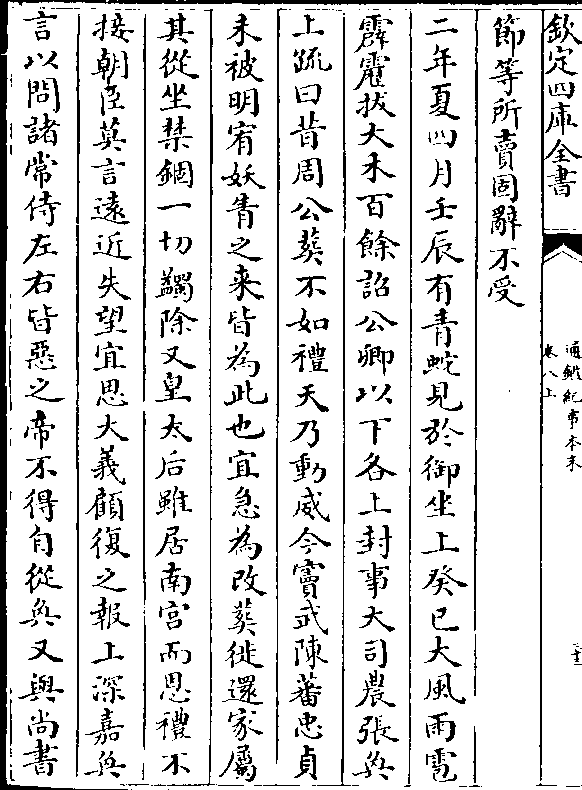 欽定四庫全書
通鑑紀事本末
卷八上
節等所賣固辭不受
二年夏四月壬辰有青蛇見於御坐上癸巳大風雨雹
霹靂拔大木百餘詔公卿以下各上封事大司農張奐
上疏曰昔周公葬不如禮天乃動威今竇武陳蕃忠貞
未被明宥妖眚之来皆為此也宜急為改葬徙還家屬
其從坐禁錮一切蠲除又皇太后雖居南宫而恩禮不
接朝臣莫言遠近失望宜思大義顧復之報上深嘉奐
言以問諸常侍左右皆惡之帝不得自從奐又與尚書